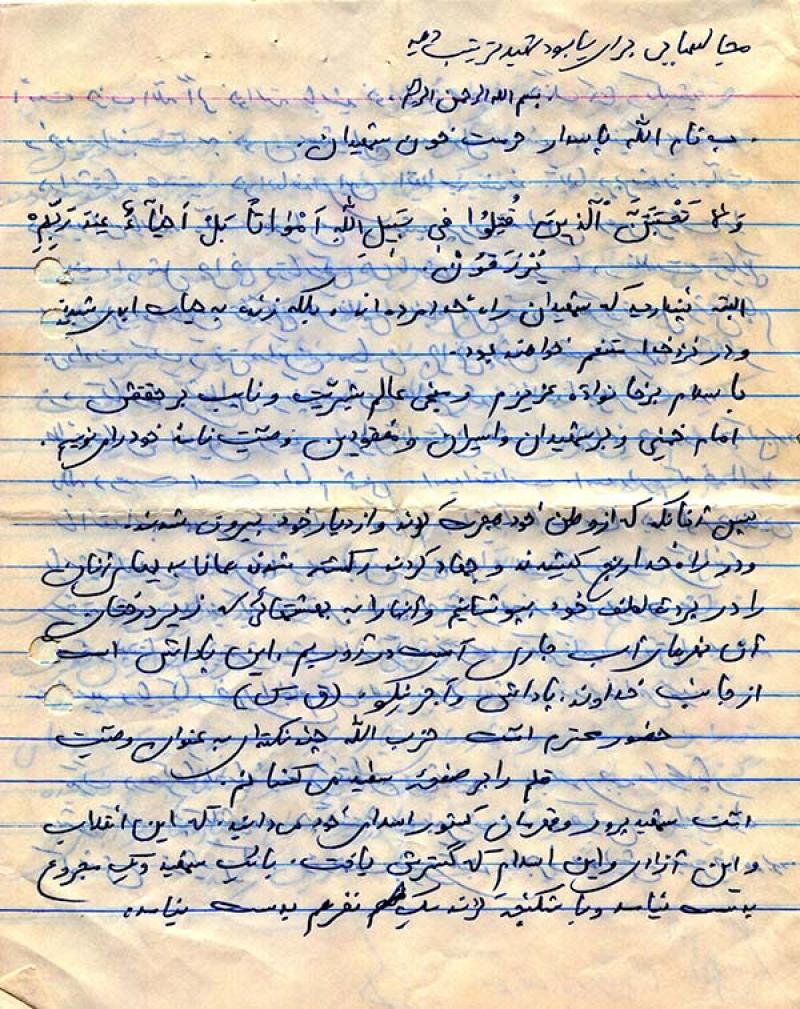 بسم الله الرحمن الرحیم
به نام الله پاسدار حرمت خون شهیدان.
وَلا تَحْسَبَنَّ الَّذینَ قُتِلُوا فی سَبیلِ اللهِ اَمْواتاً بَلْ اَحْیآءٌ عِندَ رَبِّهِمْ
یُرْزَقُونْ.
البته نپندارید که شهیدان راه خدا مرده‌اند، بلکه زنده به حیات ابدی شدند
و در نزد خدا متنعم خواهند بود.
با سلام بر خانواده عزیزم و منجی عالم بشریت و نایب بر حقش
امام خمینی و بر شهیدان و اسیران و مفقودین وصیت نامه خود را می نویسم.
پس آنانکه از وطن خود هجرت کردند و از دیار خود بیرون شدند
و در راه خدا رنج کشیدند و جهاد کردند و کشته شدند همانا بدیهای آنان
را در پرده لطف خود بپوشانیم و آنها را به بهشتهائی که زیر درختان
آن نهرهای آب جاری است در آوریم، این پاداش است
از جانب خداوند، پاداش و اجر نیکو، (ق س)
حضور محترم امت حزب الله چند نکته‌ای به عنوان وصیت
قلم را بر صفحه سفید می کشانم.
امت شهید پرور و قهرمان کشور اسلامی خود می دانید، که این انقلاب
و این آزادی و این اسلام که گسترش یافت، با یک شهید و یک مجروح
بدست نیامد و با شکنجه کردن یک نفر هم بدست نیامد.